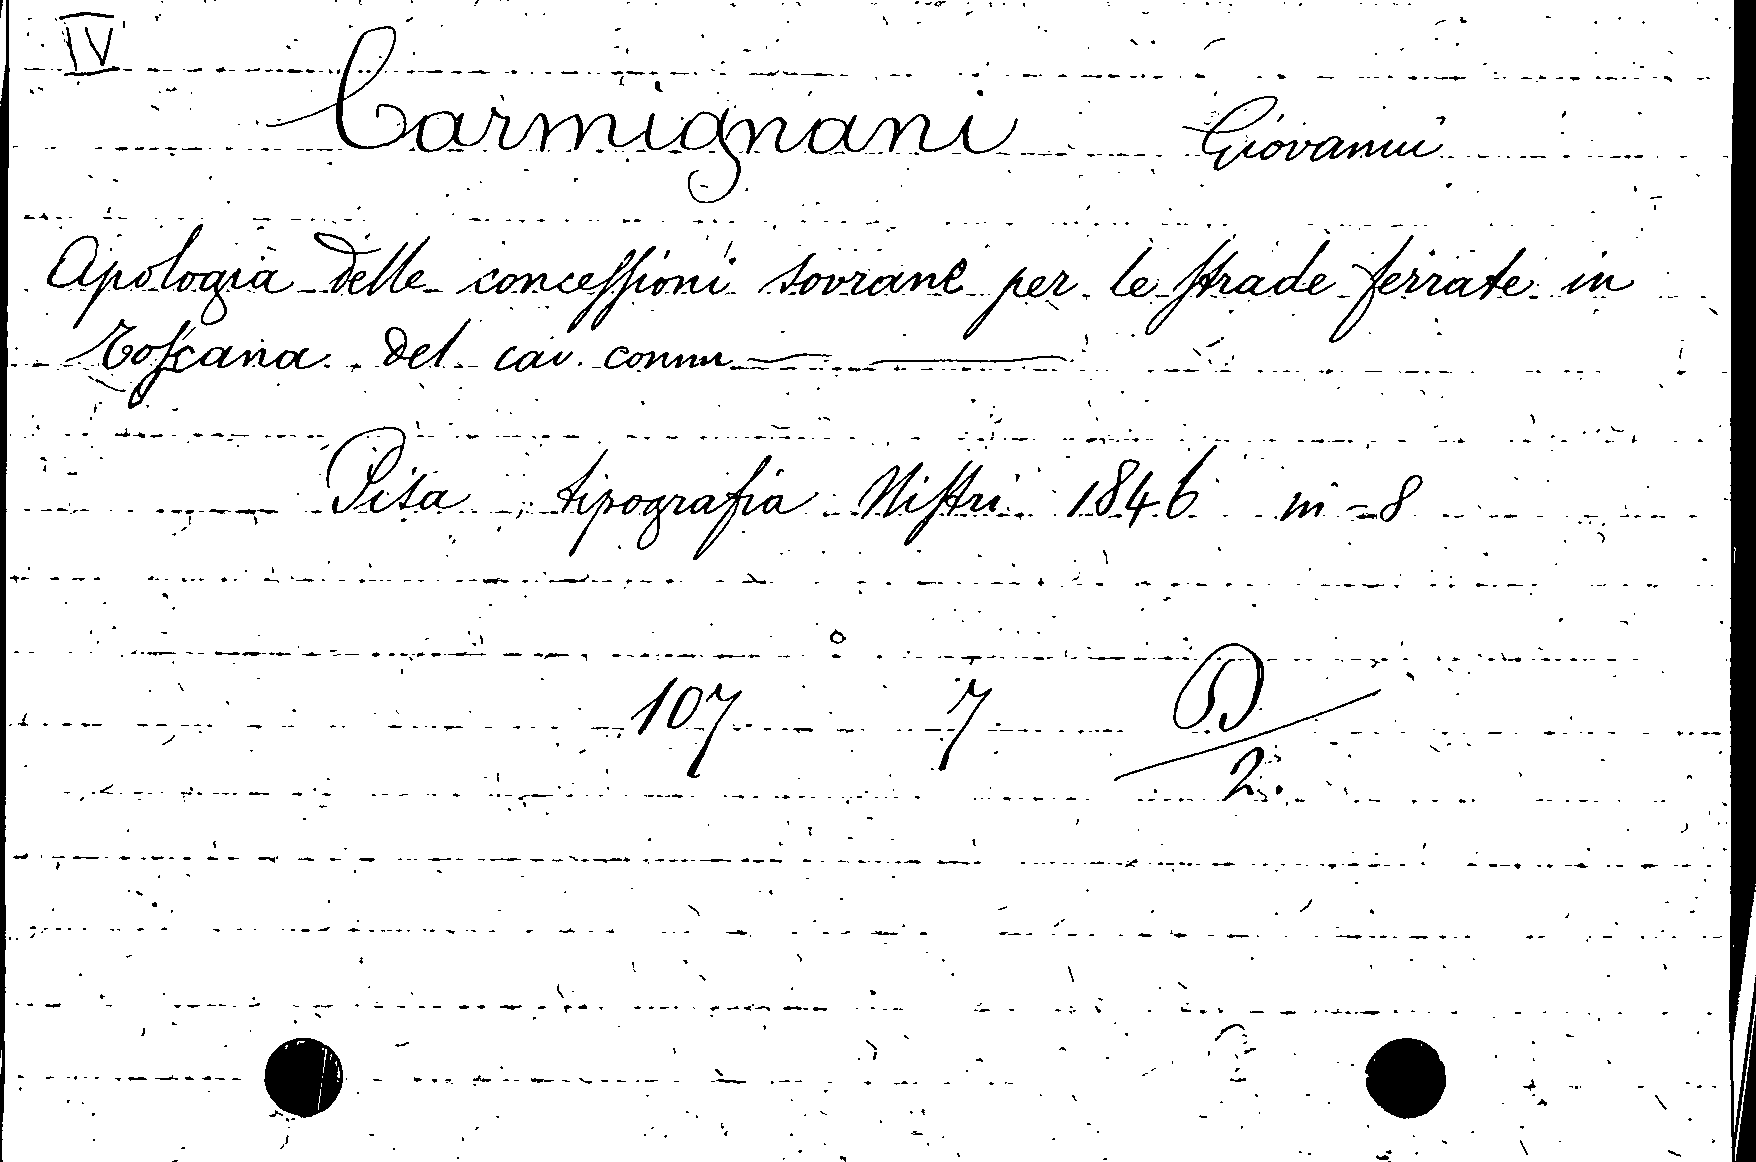 IV
Carmignani Giovanni
Apologia delle concessioni sovrane per le strade ferrate in
Toscana del cav. comm
Pisa, tipografia Nistri 1846 in-8
107 7 D/2.